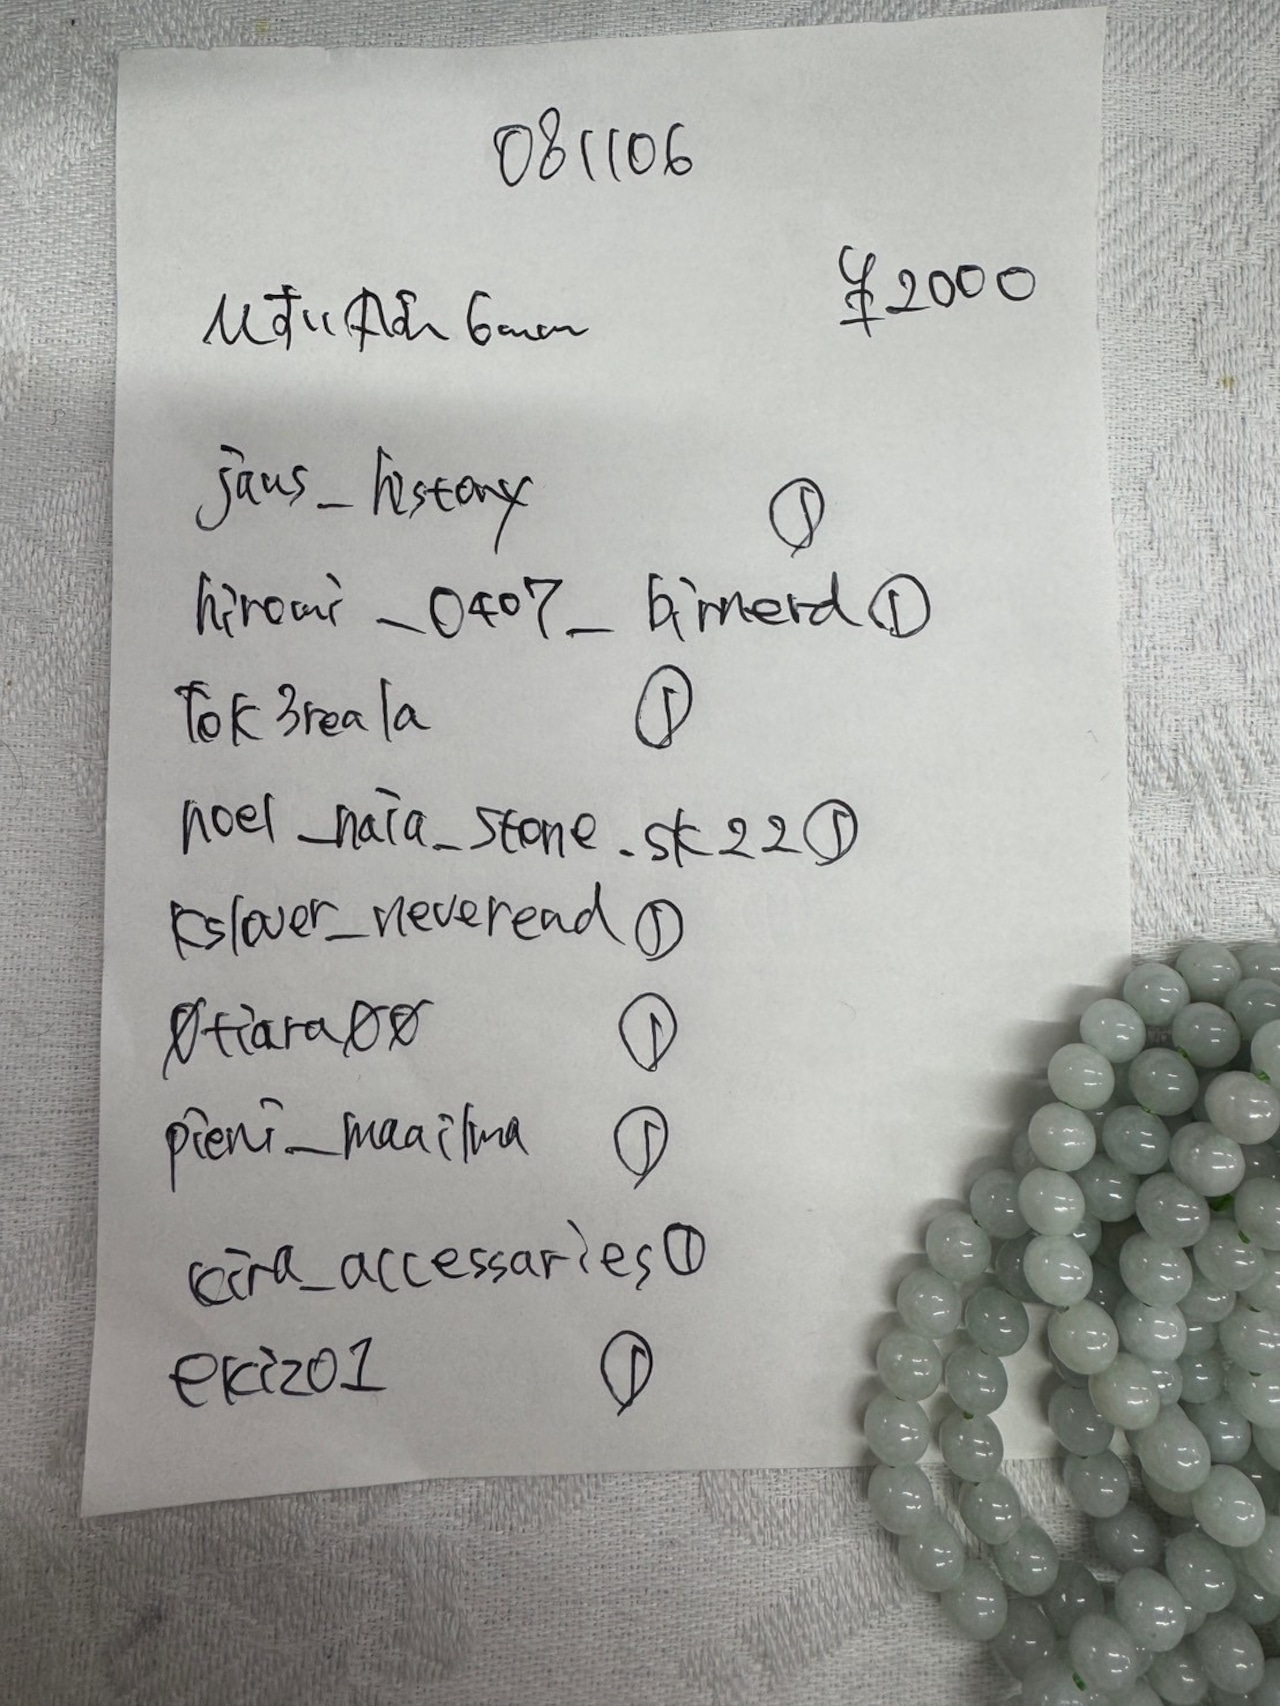 081106
¥2000
6mm
jaus_history ①
hiromi_0407_birnerd ①
tok3reala ①
noel_naia_stone.sk22 ①
kslover_neverend ①
0tiara00 ①
pieni_maailma ①
kira_accessaries ①
ekizo1 ①